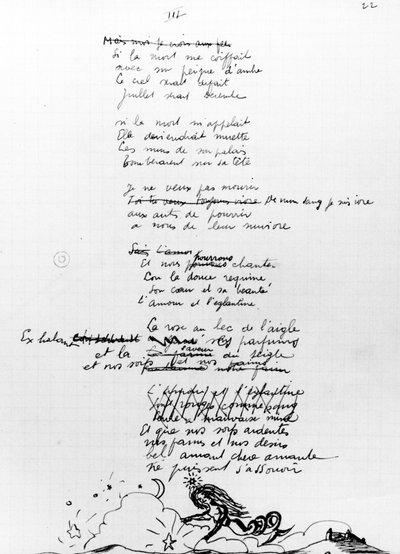 III
22
Mais moi je crois aux fées
Si la mort me coiffait
avec un peigne d'ambre
Le ciel serait défait
Juillet serait Décembre
Si la mort m'appelait
Elle deviendrait muette
Les murs de mon palais
Tomberaient sur sa tête
Je ne veux pas mourir
Toi tu veux toujours vivre De mon sang je suis ivre
aux arts de pourrir
à nous de leur survivre
Sais l'amour
Et nous pourrons chanter
Con la douce requine
Son cœur et sa beauté
L'amour et l'églantine
La rose au bec de l'aigle
Exhalant ses parfums
et la saveur du seigle
et nos soifs et nos faims
et l'églantine
comme sang
mauvaise mine
Et que nos corps ardentes
nos faims et nos désirs
bel amant chère amante
Ne puissent s'assouvir